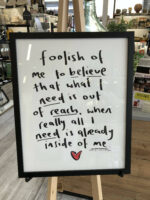 foolish of
me to believe
that what I
need is out
of reach, when
really all I
need is already
inside of me